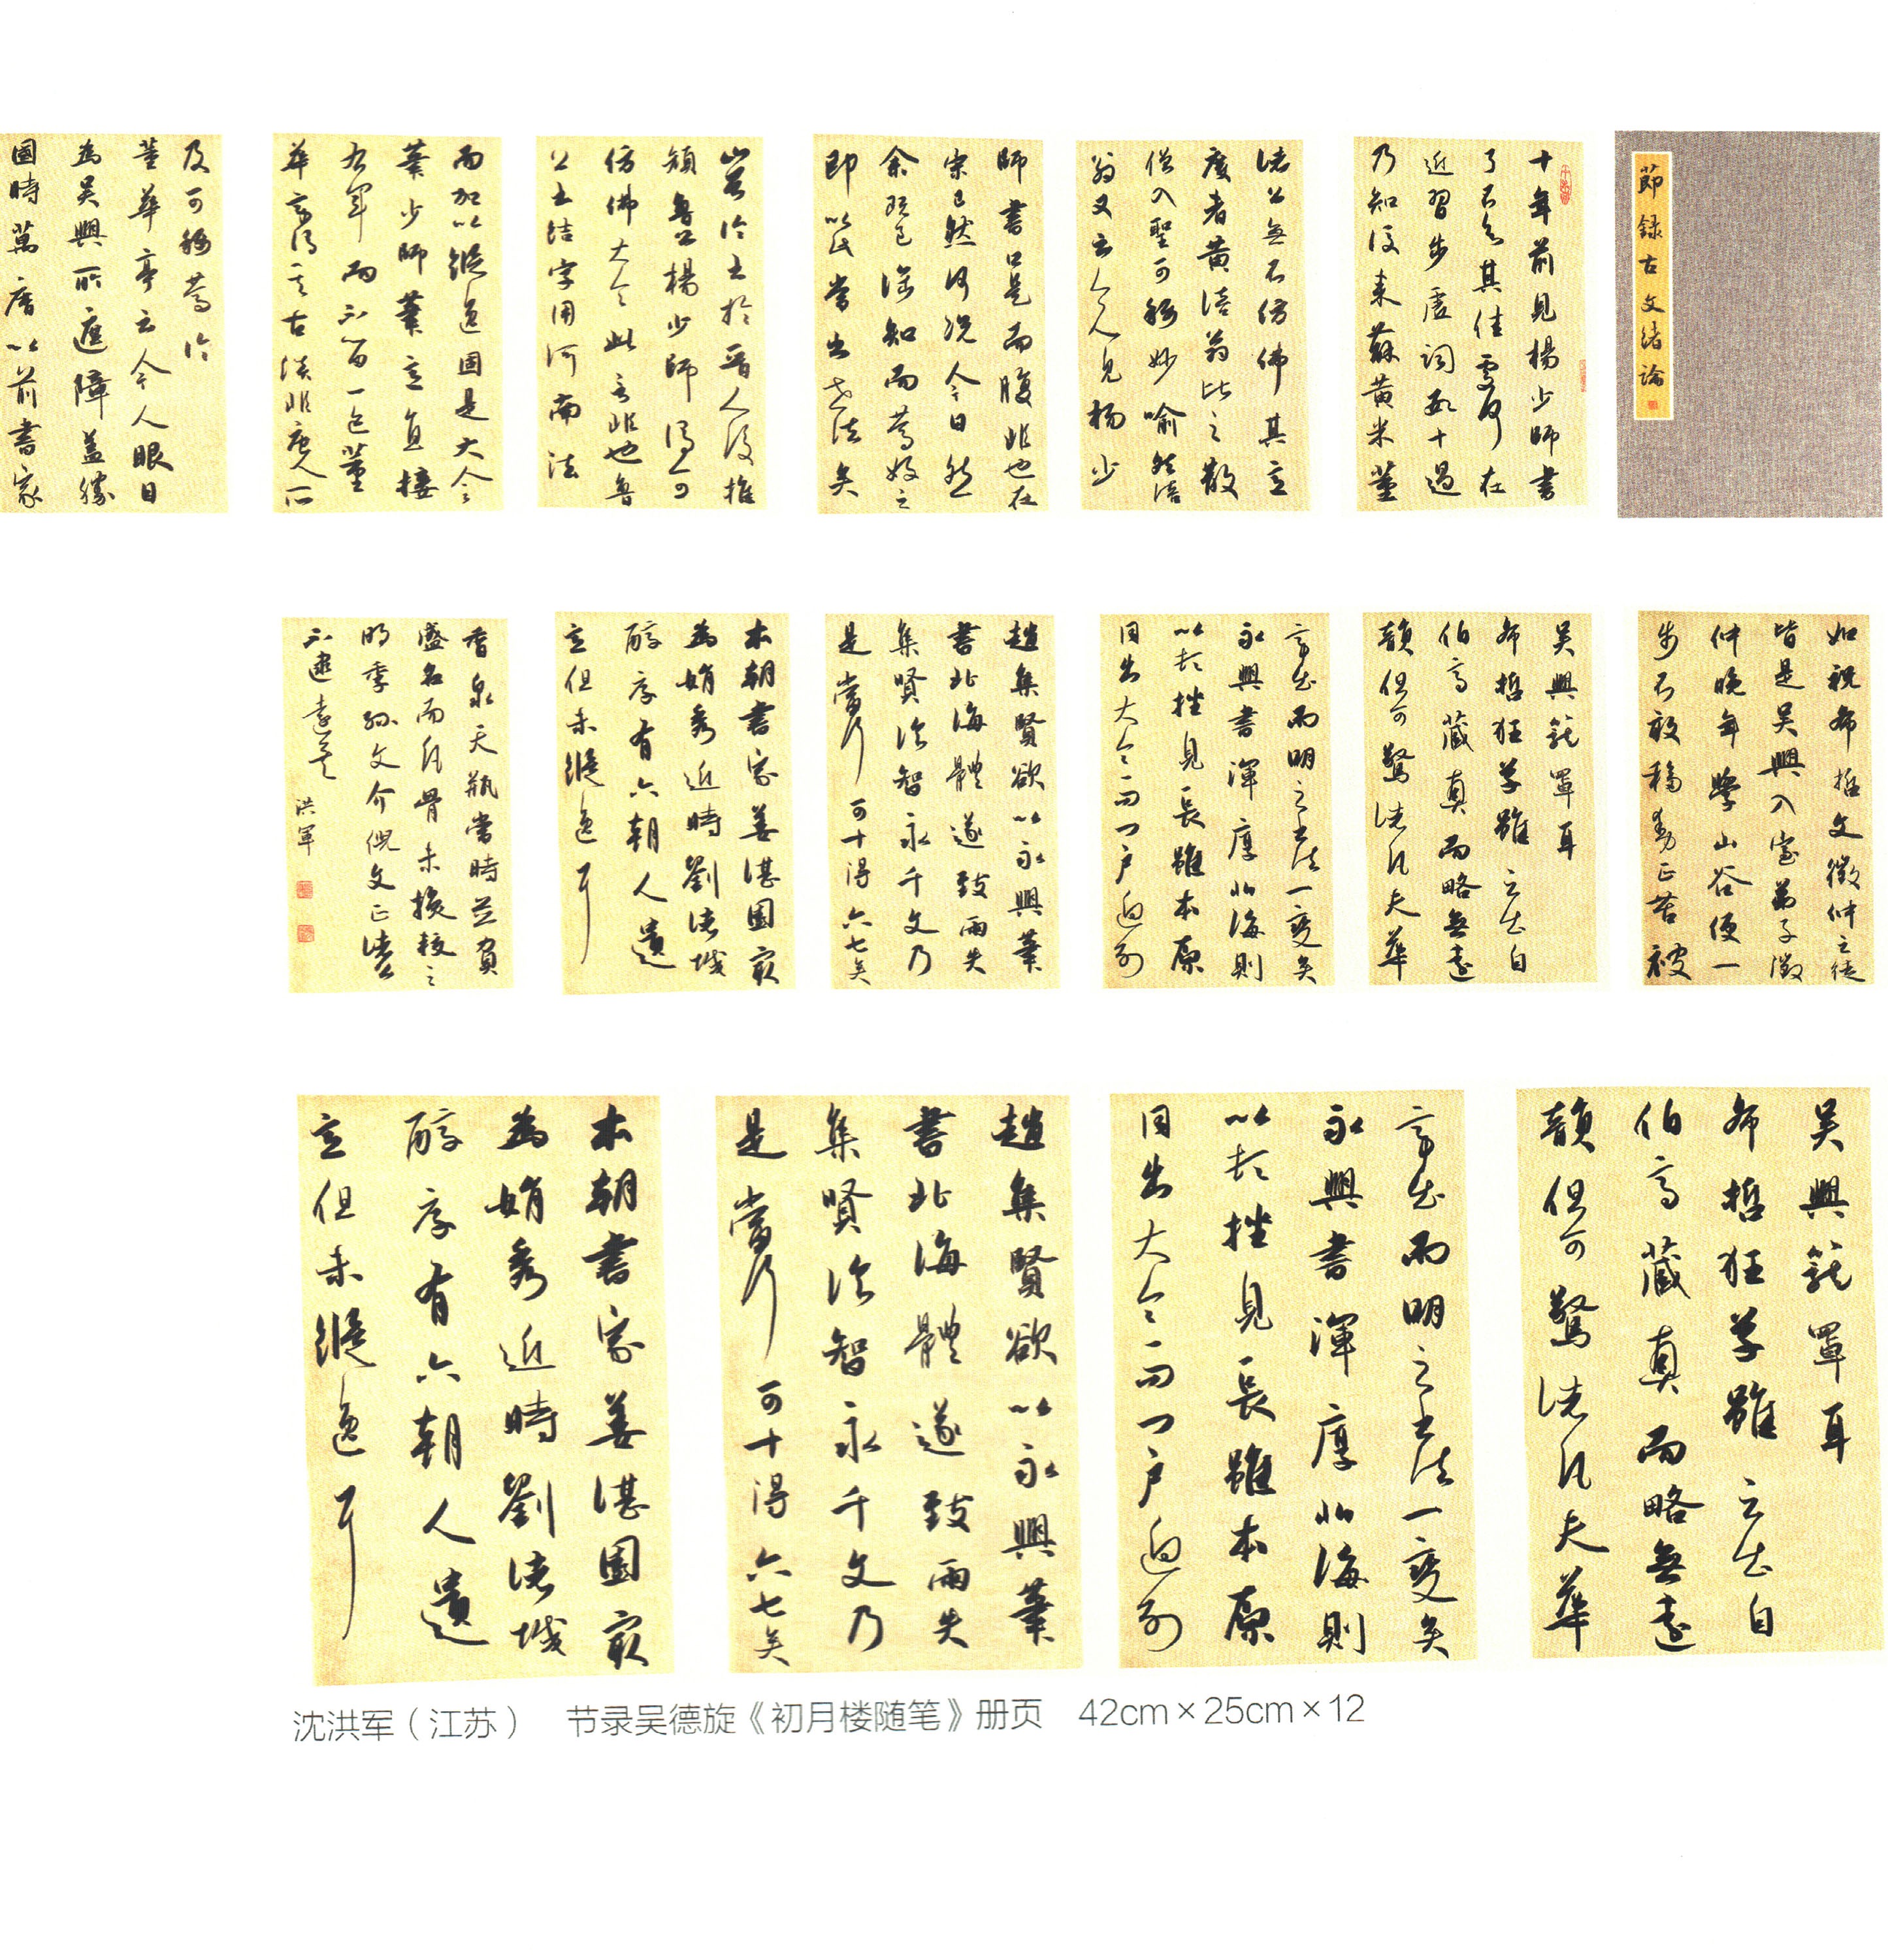 節錄古文緒論
十年前見楊少師書
了不知其佳處何在
近習步虛詞數十過
乃知後來蘇黃米董
諸公無不仿佛其意
度者黃涪翁比之散
僧入聖可稱妙喻然涪
翁又云人人見楊少
師書口是而腹非也在
宋已然何況今日然
余既已深知而篤好之
即以此當出世法矣
山谷論書於晉人後推
顏魯公楊少師謂可
仿佛大令此言非也魯
公書結字用河南法
而加以縱逸固是大令
筆少師筆意直接
右軍而不留一迹董
華亭謂其古淡非唐人所
及可稱篤論
董華亭云今人眼目
為吳興所遮障蓋勝
國時萬曆以前書家
如祝希哲文徵仲之徒
皆是吳興入室弟子徵
仲晚年學山谷便一
步不敢移動正苦被
吳興籠罩耳
希哲狂草雖云出自
伯高藏真而略無遠
韻但可驚諸凡夫華
亭出而明之書法一變矣
永興書渾厚北海則
以頓挫見長雖本原
同出大令而門戶迥別
趙集賢欲以永興筆
書北海體遂致兩失
集賢臨智永千文乃
是當行可十得六七矣
本朝書家姜湛園最
為娟秀近時劉諸城
醇厚有六朝人遺
意但未縱逸耳
香泉天瓶當時並負
盛名而風骨未振較之
明季孫文介倪文正諸公
不逮遠矣 洪軍
吳興籠罩耳
希哲狂草雖云出自
伯高藏真而略無遠
韻但可驚諸凡夫華
亭出而明之書法一變矣
永興書渾厚北海則
以頓挫見長雖本原
同出大令而門戶迥別
趙集賢欲以永興筆
書北海體遂致兩失
集賢臨智永千文乃
是當行可十得六七矣
本朝書家姜湛園最
為娟秀近時劉諸城
醇厚有六朝人遺
意但未縱逸耳
沈洪军（江苏） 节录吴德旋《初月楼随笔》册页 42cm×25cm×12